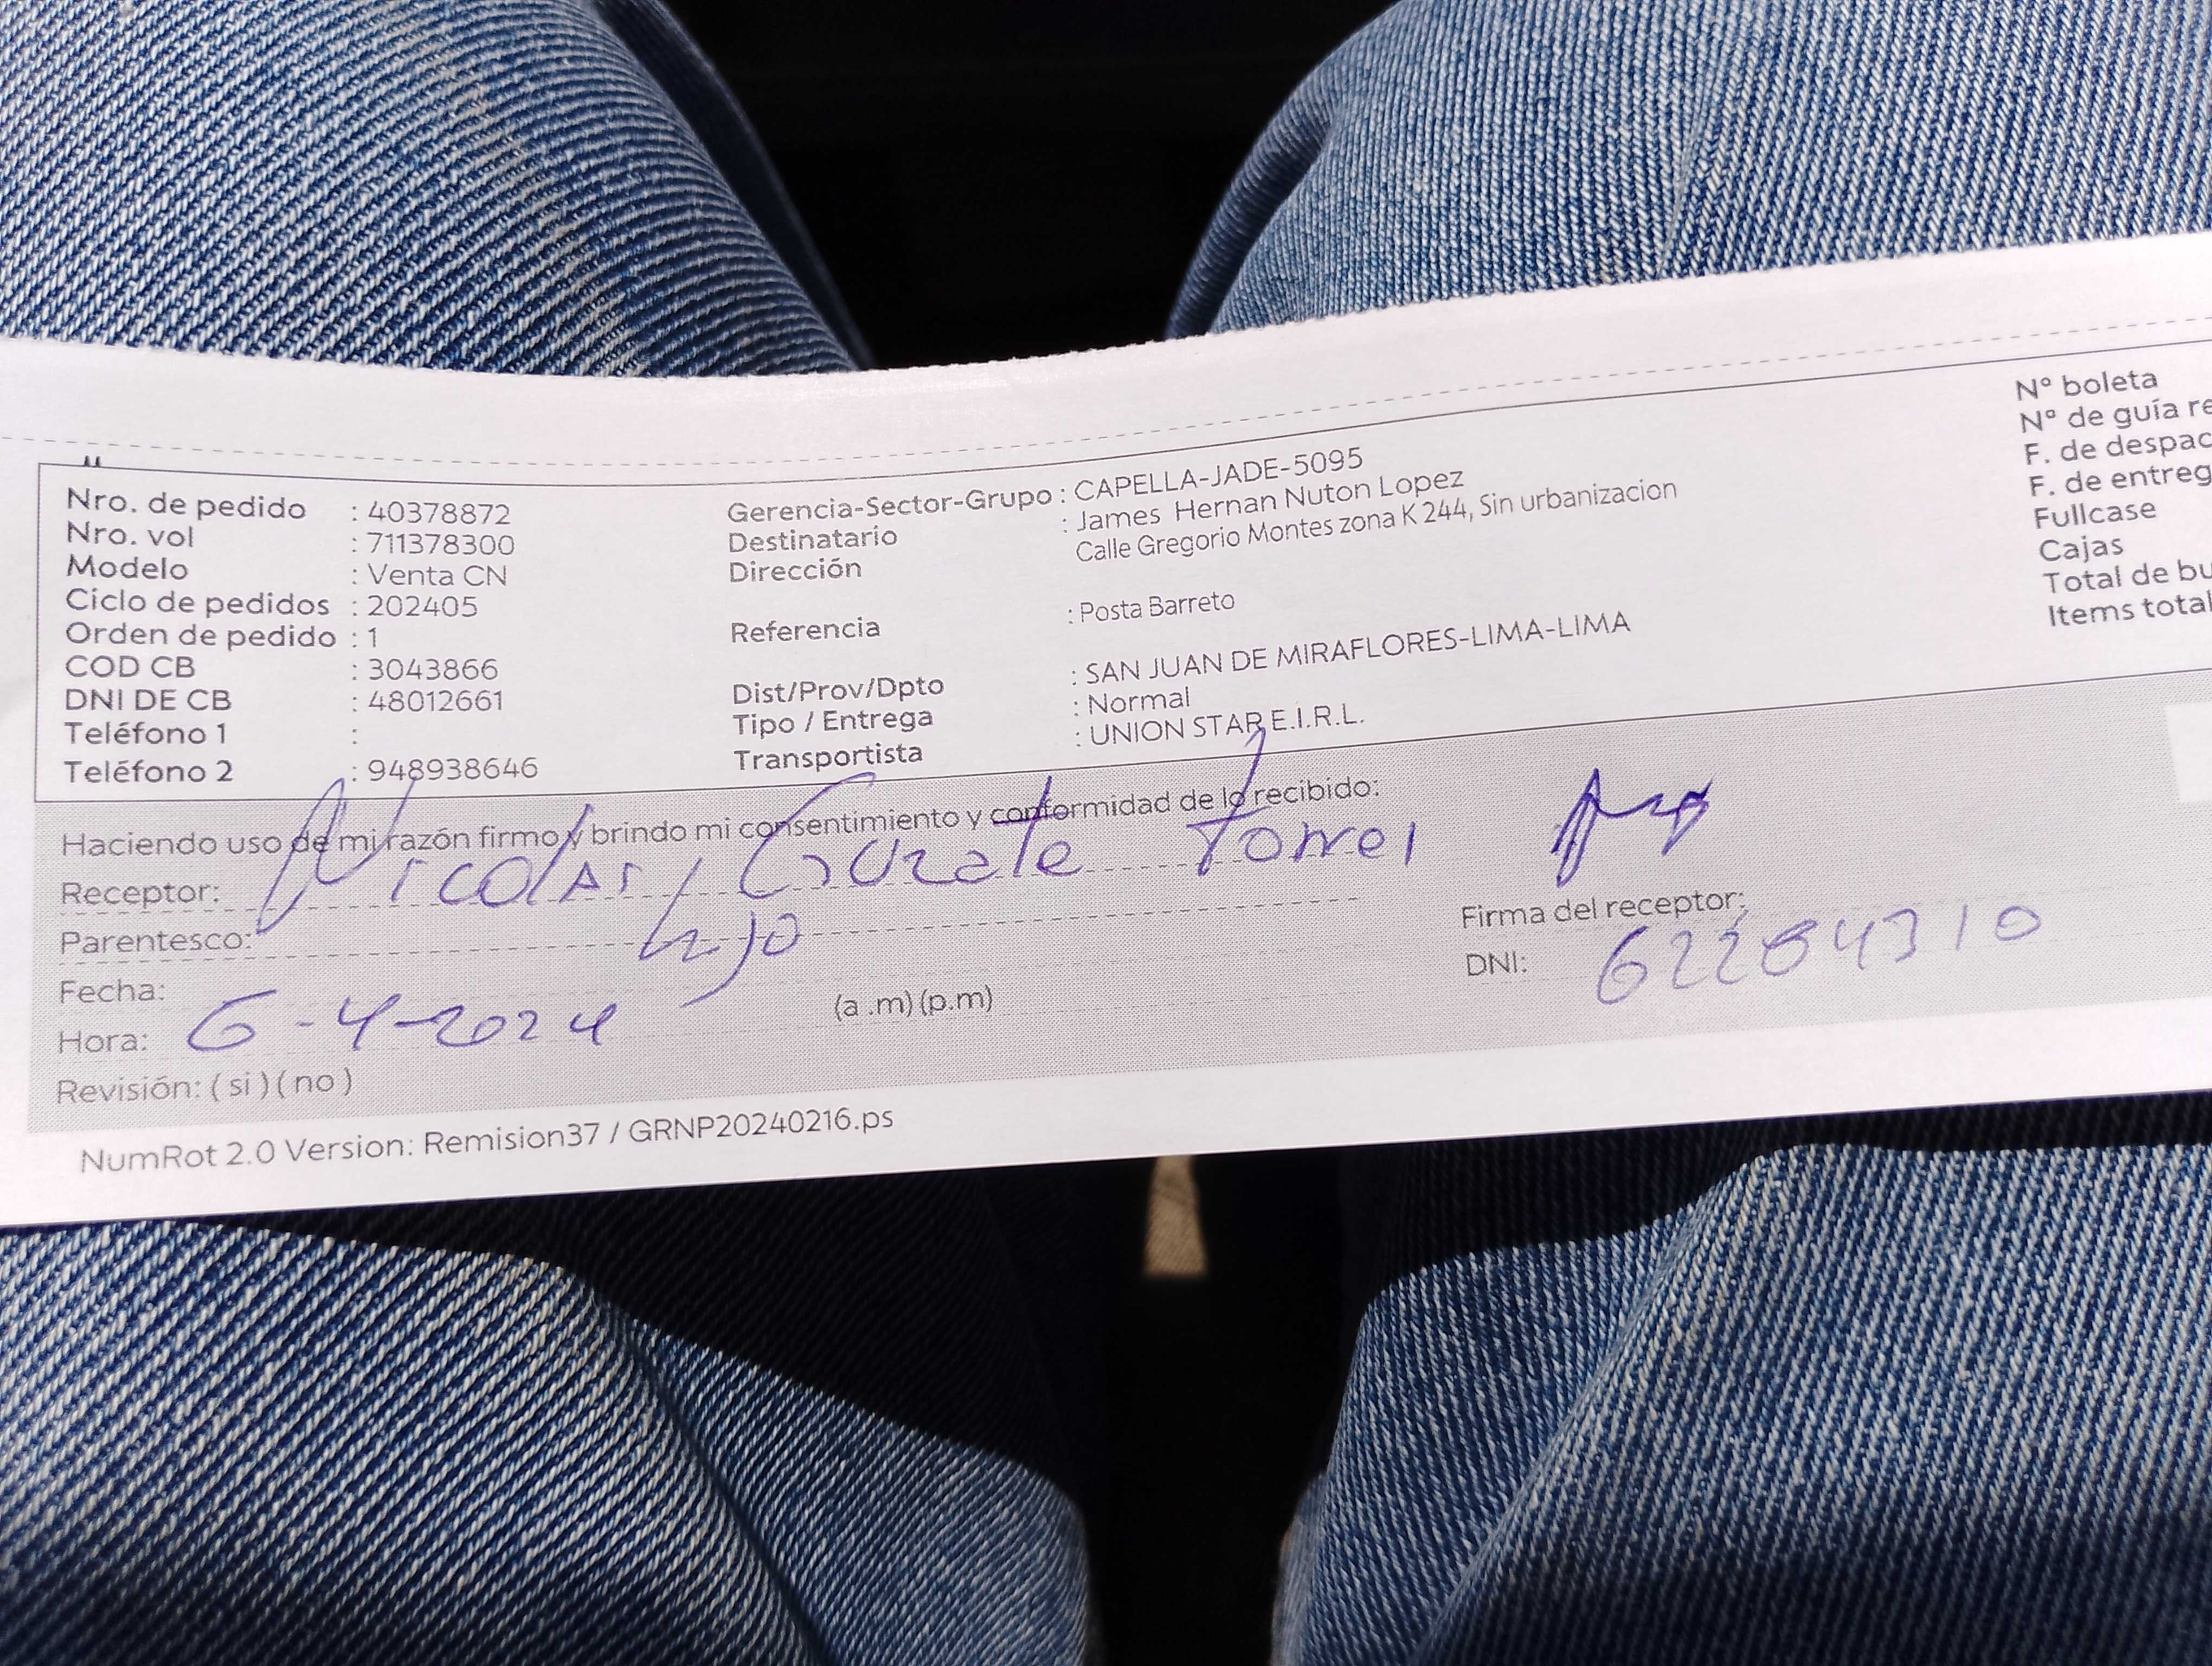 Nro. de pedido : 40378872
Nro. vol : 711378300
Modelo : Venta CN
Ciclo de pedidos : 202405
Orden de pedido : 1
COD CB : 3043866
DNI DE CB : 48012661
Teléfono 1 :
Teléfono 2 : 948938646
Gerencia-Sector-Grupo : CAPELLA-JADE-5095
Destinatario : James Hernan Nuton Lopez
Dirección Calle Gregorio Montes zona K 244, Sin urbanizacion
Referencia : Posta Barreto
Dist/Prov/Dpto : SAN JUAN DE MIRAFLORES-LIMA-LIMA
Tipo / Entrega : Normal
Transportista : UNION STAR E.I.R.L.
Nº boleta
Nº de guía re
F. de despac
F. de entreg
Fullcase
Cajas
Total de bu
Items total
Haciendo uso de mi razón firmo y brindo mi consentimiento y conformidad de lo recibido:
Receptor: Nicolas
Parentesco: hijo
Firma del receptor:
Fecha:
DNI:
Hora: 6-4-2024 (a .m) (p.m)
Revisión: ( si ) ( no )
NumRot 2.0 Version: Remision37 / GRNP20240216.ps